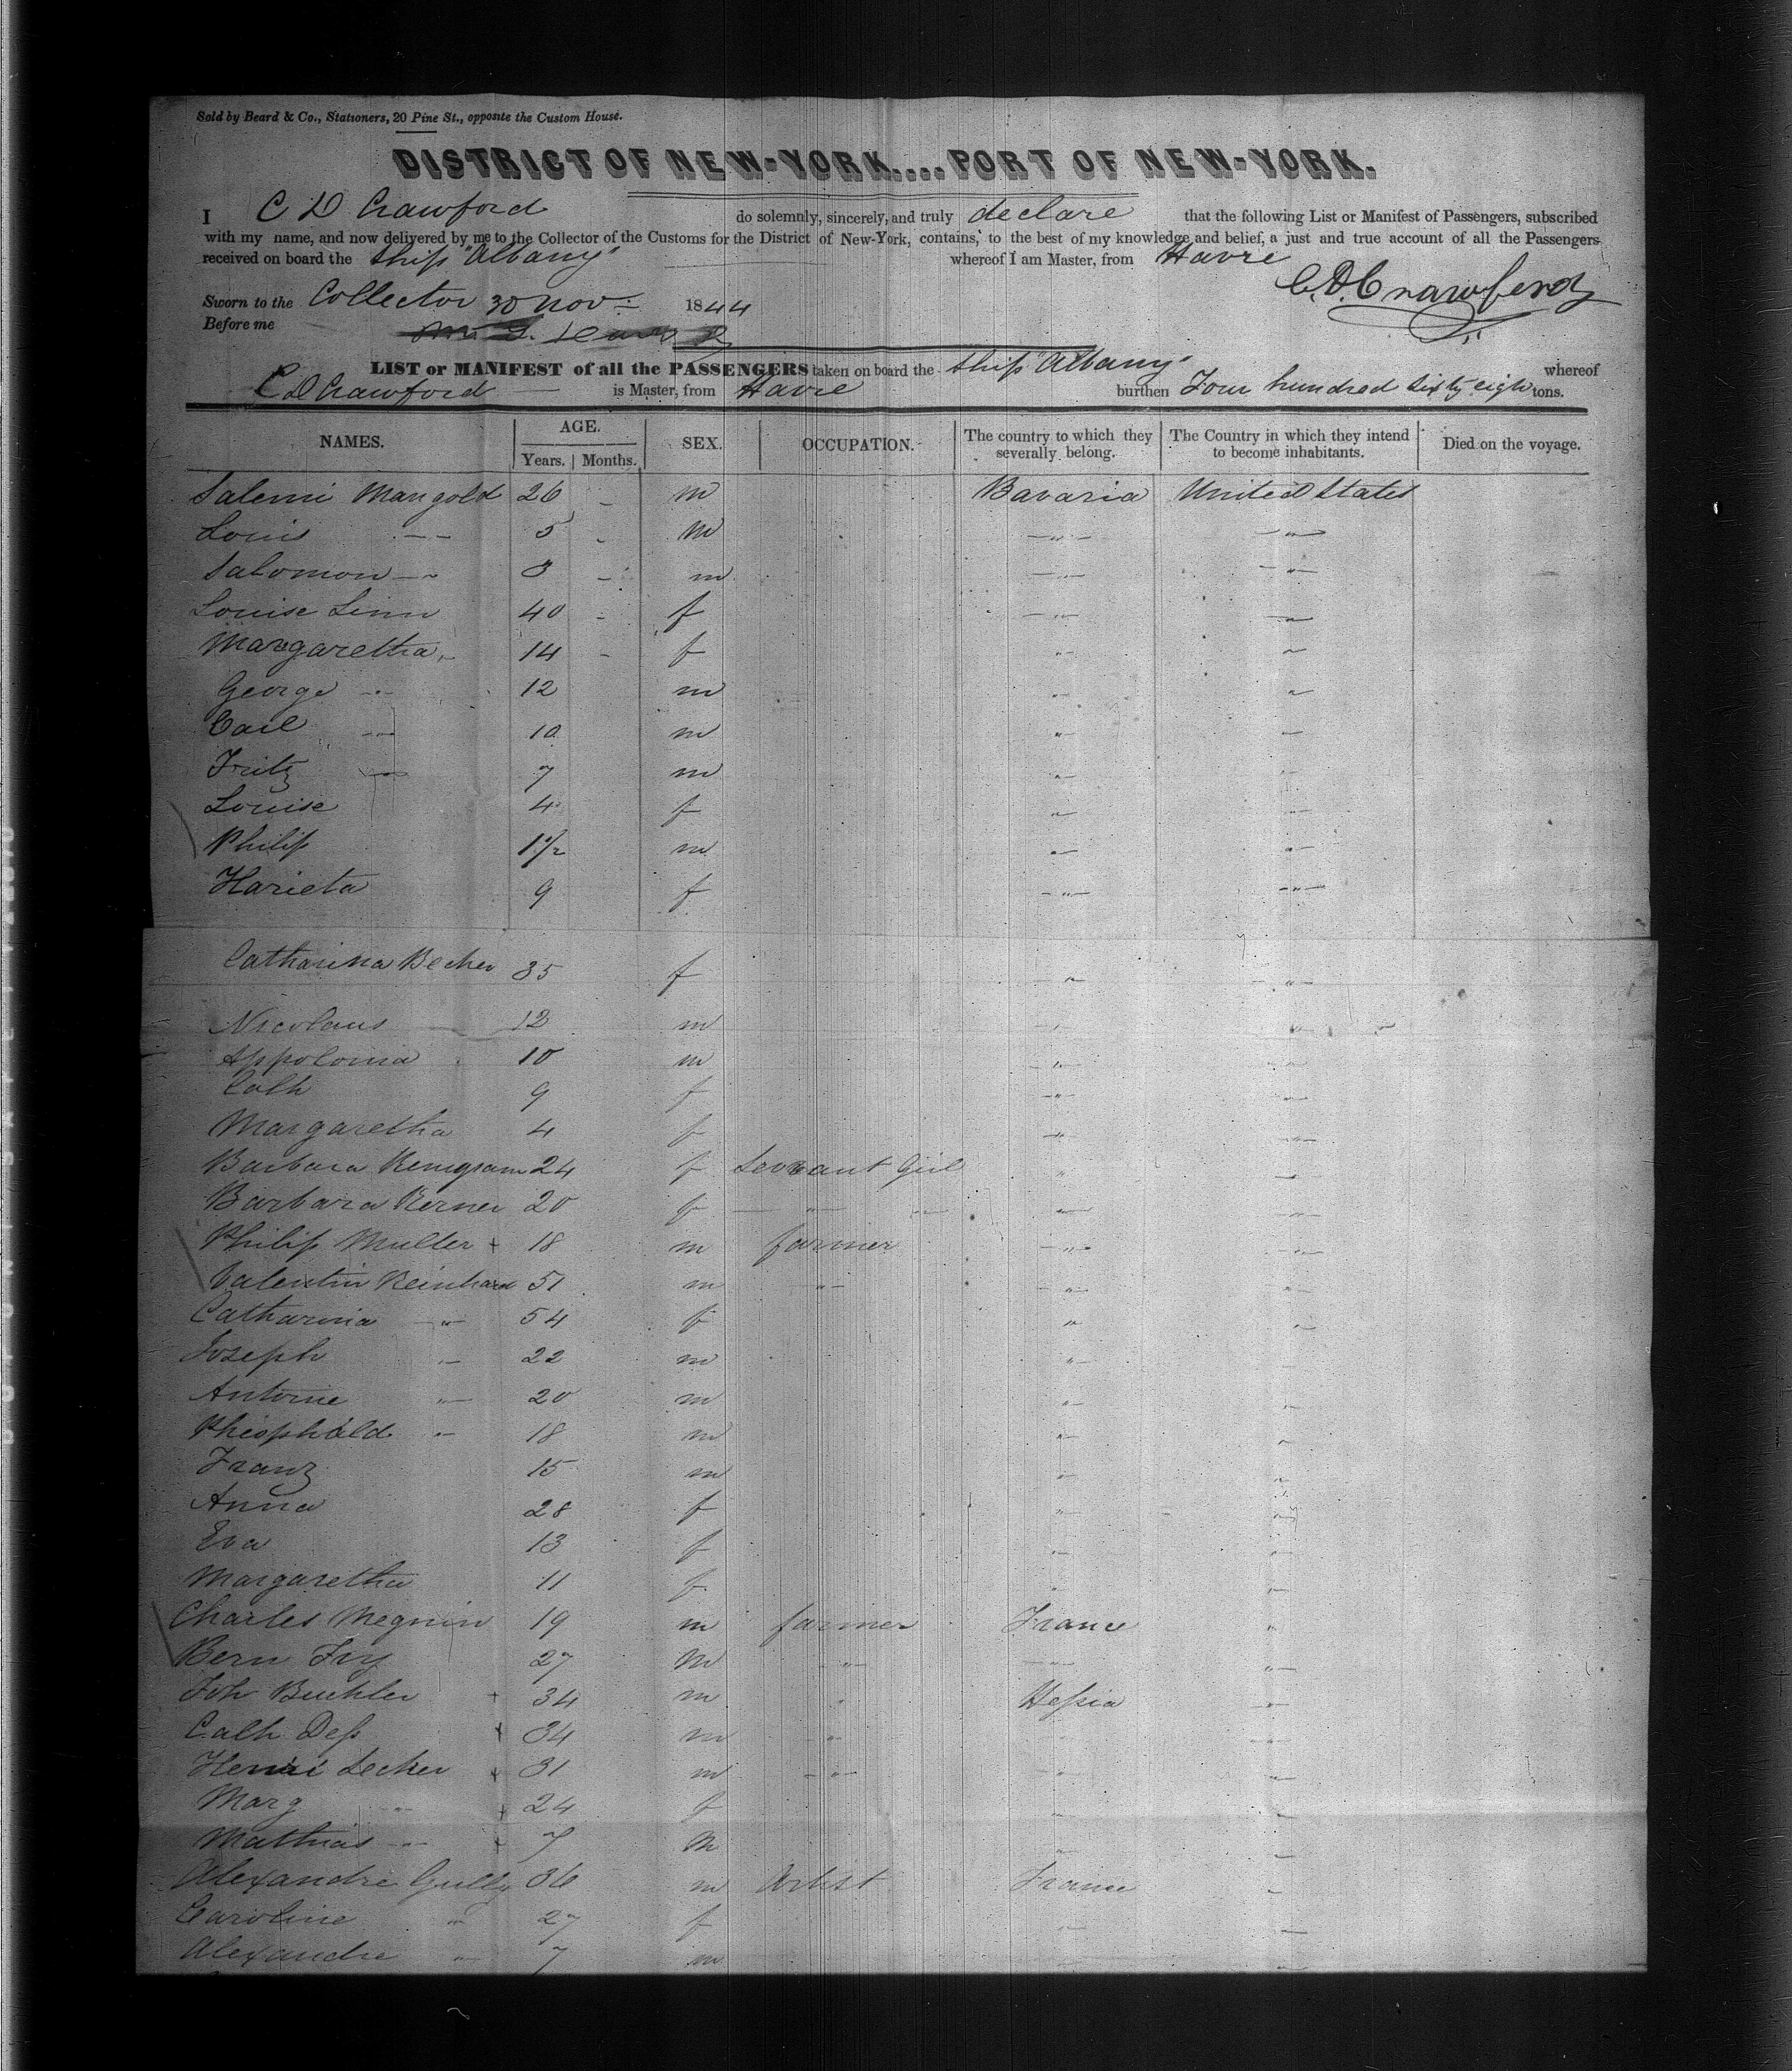 Sold by Beard & Co., Stationers, 20 Pine St., opposite the Custom House.
DISTRICT OF NEW-YORK....PORT OF NEW-YORK.
I C D Crawford do solemnly, sincerely, and truly declare that the following List or Manifest of Passengers, subscribed
with my name, and now delivered by me to the Collector of the Customs for the District of New-York, contains, to the best of my knowledge and belief, a just and true account of all the Passengers
received on board the Ship "Albany" whereof I am Master, from Havre
C. D. Crawford
Sworn to the Collector 30 Nov: 1844
Before me
LIST or MANIFEST of all the PASSENGERS taken on board the Ship "Albany" whereof
C D Crawford is Master, from Havre burthen Four hundred Sixty eight tons.
NAMES. AGE. Years. Months. SEX. OCCUPATION. The country to which they severally belong. The Country in which they intend to become inhabitants. Died on the voyage.
Mangold 26 - m Bavaria United States
Louis -- 5 - m -"- -"-
Salomon -- 3 - m -"- -"-
Louise Linn 40 - f -"- -"-
Margaretha - 14 - f " "
George -"- 12 m " "
Carl -"- 10 m " "
Fritz -"- 7 m " "
Louise 4 f " "
Philip 1 1/2 m " "
Harieta 9 f -"- -"-
Catharina Becker 35 f " "
Nicolaus 12 m " "
Appolonia 10 m " "
Cath 9 f " "
Margaretha 4 f " "
Barbara 24 f Servant Girl " "
Barbara Kerner 20 f " " "
Philip Muller + 18 m farmer " "
Valentin Reinhard 51 m " " "
Catharina " 54 f " "
Joseph " 22 m " "
Antoine " 20 m " "
" 18 m " "
Franz 15 m " "
Anna 28 f " "
Eva 13 f " "
Margaretha 11 f " "
Charles Megnin 19 m farmer France "
Bern Fry 27 m " " "
Joh Buchler + 34 m " Hessia "
Cath + 34 m " " "
Henri Lecker + 31 m " " "
Marg " + 24 f " "
Mathias " + 7 m " "
Alexandre Gully 36 m Artist France "
Caroline " 27 f " "
Alexandre " 7 m